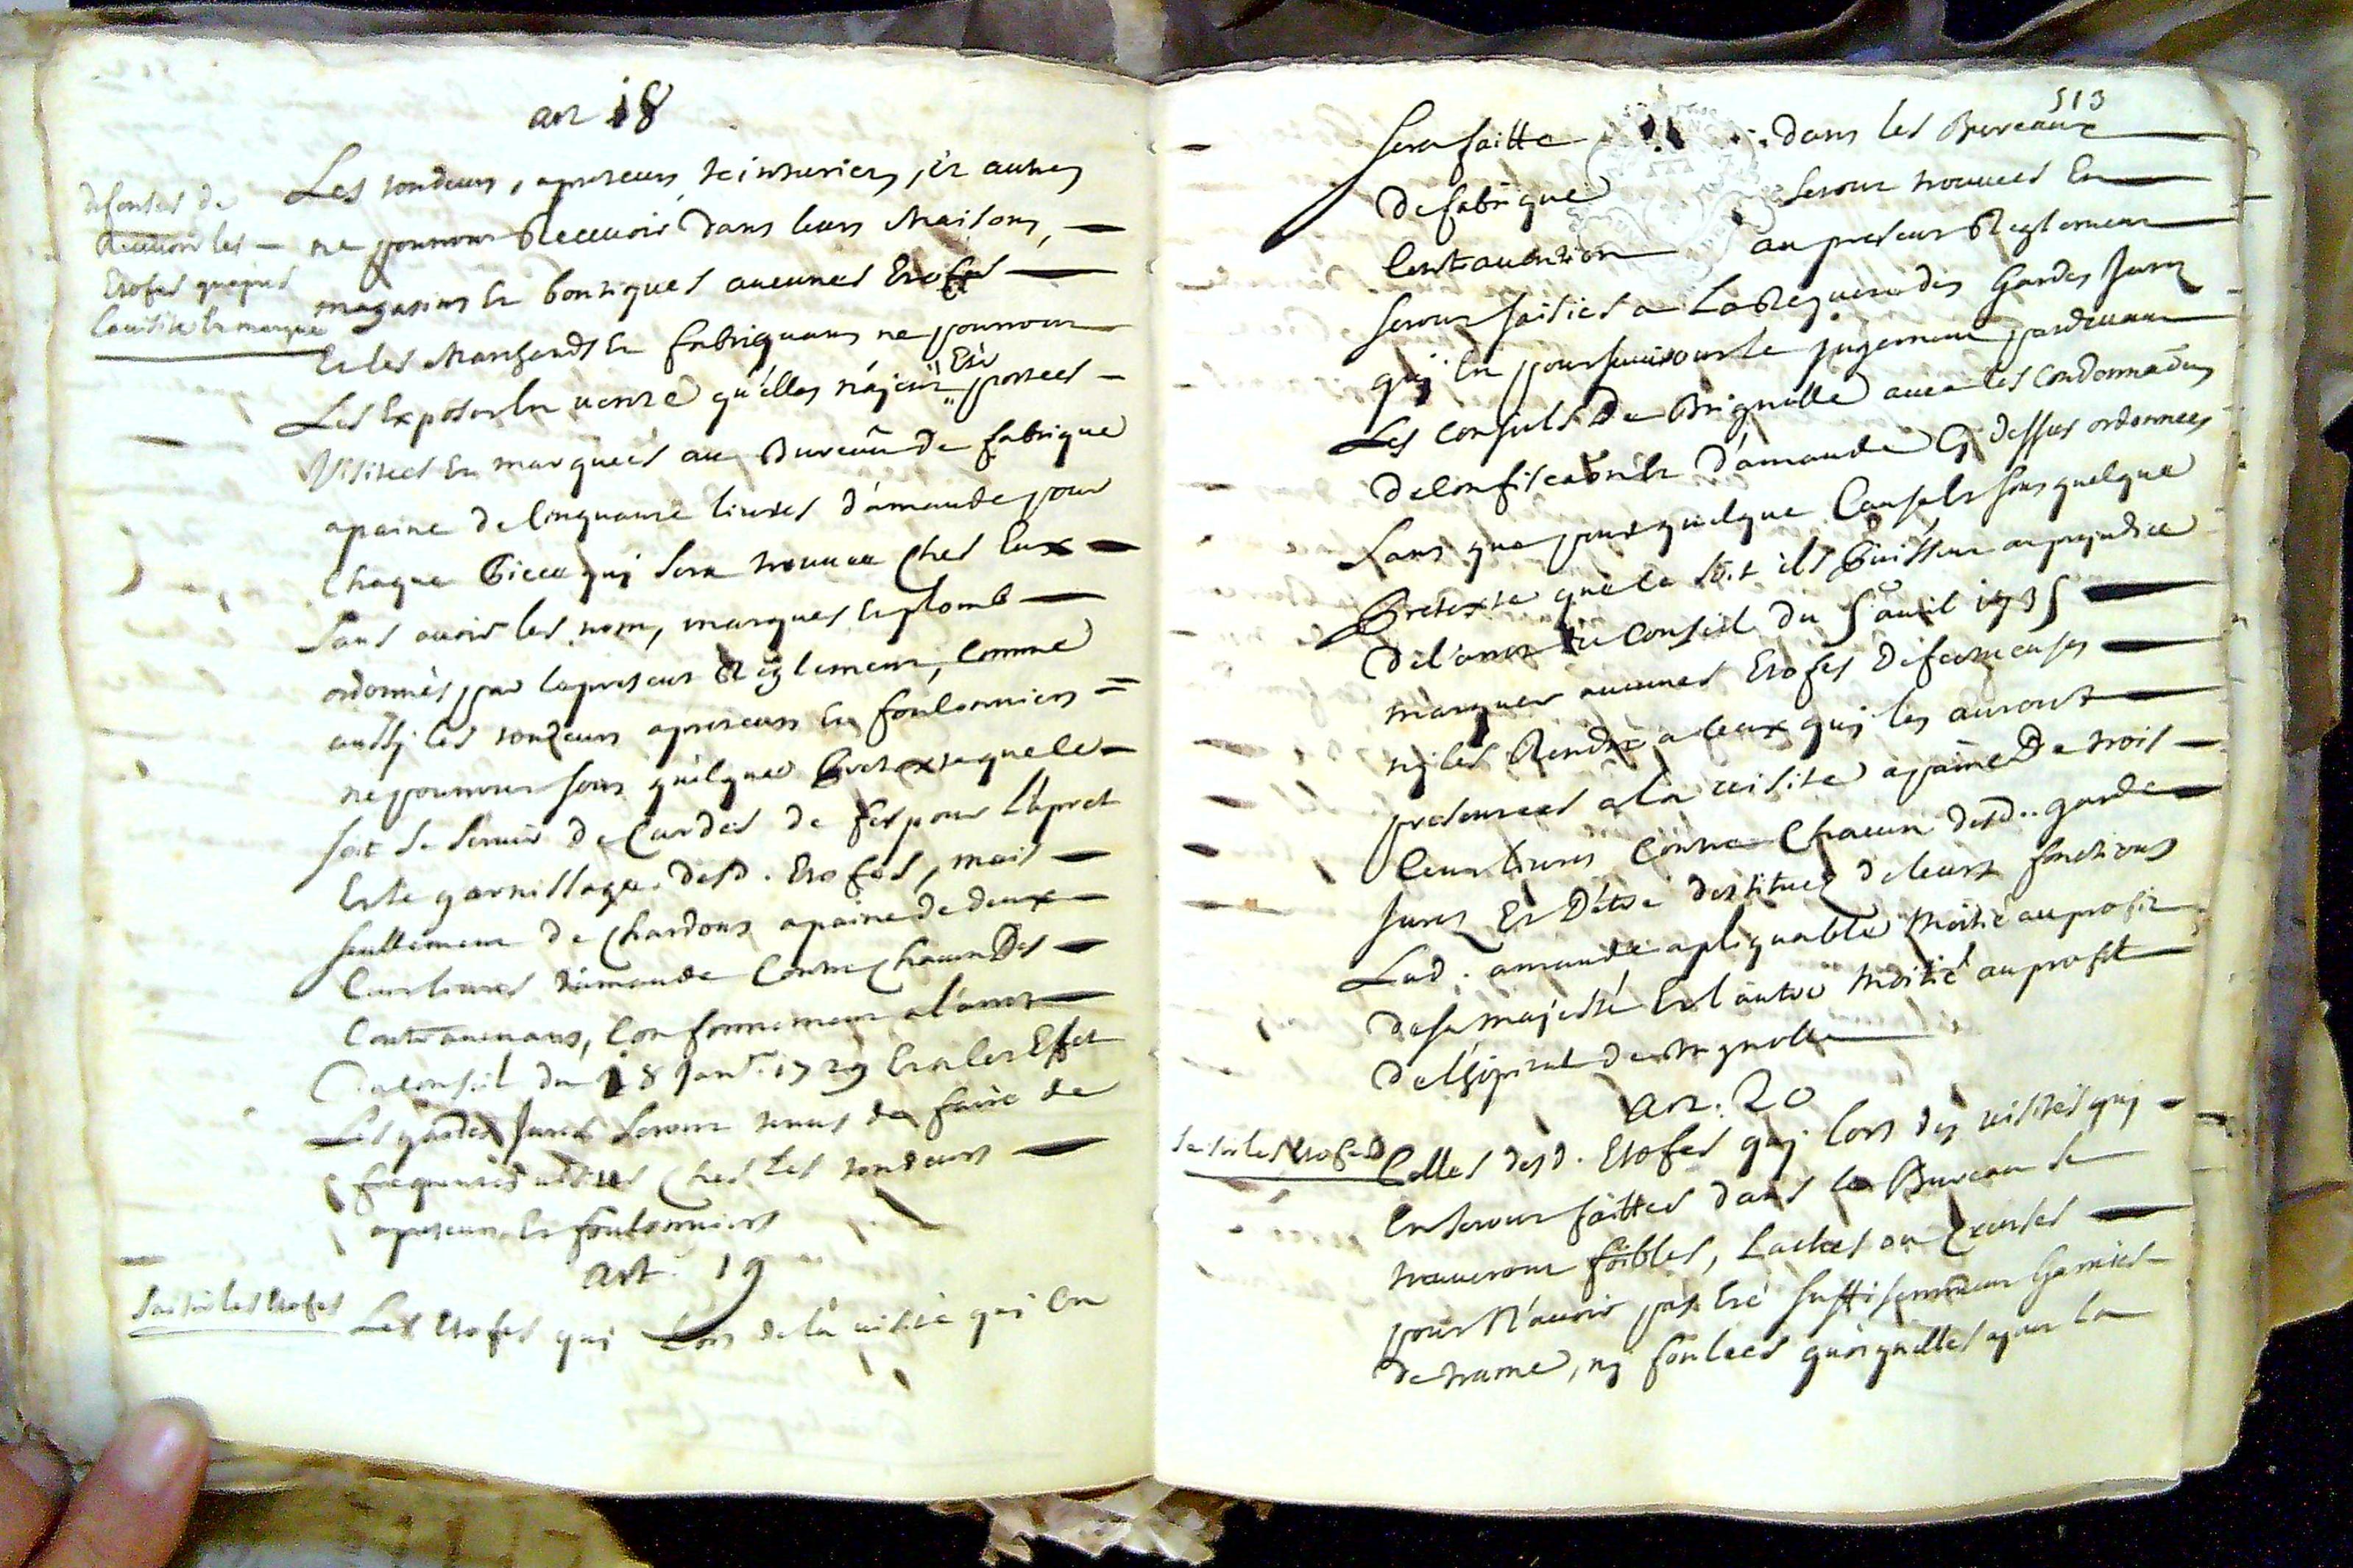 art 18
defenses de
Recevoir les
Etofes qu'apres
la visite et marque
Les tondeurs, apreteurs teinturiers, et autres
ne pourront Recevoir dans leurs Maisons,
magasins et boutiques aucunes Etofes
Et les Marchands et fabriquans ne pourront
Les Exposer En vente qu'elles n'ajent Eté portées
Visitees Et marquées au Bureau de fabrique
a paine de Cinquante livres d'amande pour
Chaque Piece qui sera trouvee Ches Eux
Sans avoir les nom, marques Et plomb
ordonnés par le present Reglement, Comme
aussy les tondeurs apreteurs Et foulonniers
ne pourront sous quelque Pretexte que ce
soit se servir de Cardes de fer pour l'apret
Et le garnissage desd. Etofes, mais
seullement de Chardons a paine de deux
Cens livres d'amande Contre Chacun Des
Contrevenans, Conformement a l'arret
Du Conseil du 18 Janr. 1729 Et a cet Effet
Les gardes Jurés seront tenus de faire de
frequentes visites Ches les tondeurs
apreteurs Et foulonniers
Art. 19
Saisir les Etofes
Les Etofes qui Lors de la visite qui En
513
sera faitte dans les Bureaux
de fabrique seront trouvees En
Contravention au present Reglement
seront saisies a La Requete des Gardes Jurez
quj En poursuivront le jugement pardevant
Les Consuls De Brignolle avec les condemnaons
de Confiscation Et D'amande Cy dessus ordonnees
Sans que pour quelque Cause Et sous quelque
Pretexte que ce soit ils Puissent au prejudice
de l'arret du Conseil du 5e avril 1735
marquer aucunes Etofes Defectueuses
nj les Rendre a Ceux quj les auront
presentees a la visite a paine De trois
Cens livres Contre Chacun desd. gardes
Jurez Et D'être destitues de leurs fonctions
Lad. amande apliquable Moitié au profit
de sa majesté Et l'autre Moitié au profit
de l'hôpital de Brignolle
art. 20
Saisir les Etofes
Celles desd. Etofes quj lors des visites quj
En seront faittes dans le Bureau se
trouveront foibles, Laches ou Creuses
pour N'avoir pas Eté suffisemment Garnies
de trame, nj foulees quoiqu'elles ayent la